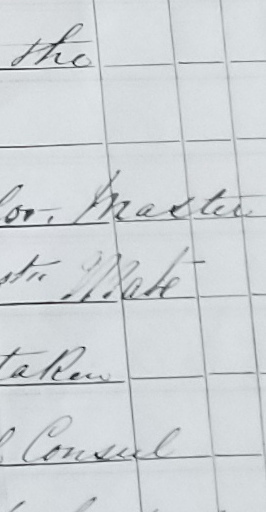 the
Master
Mate
taken
Consul